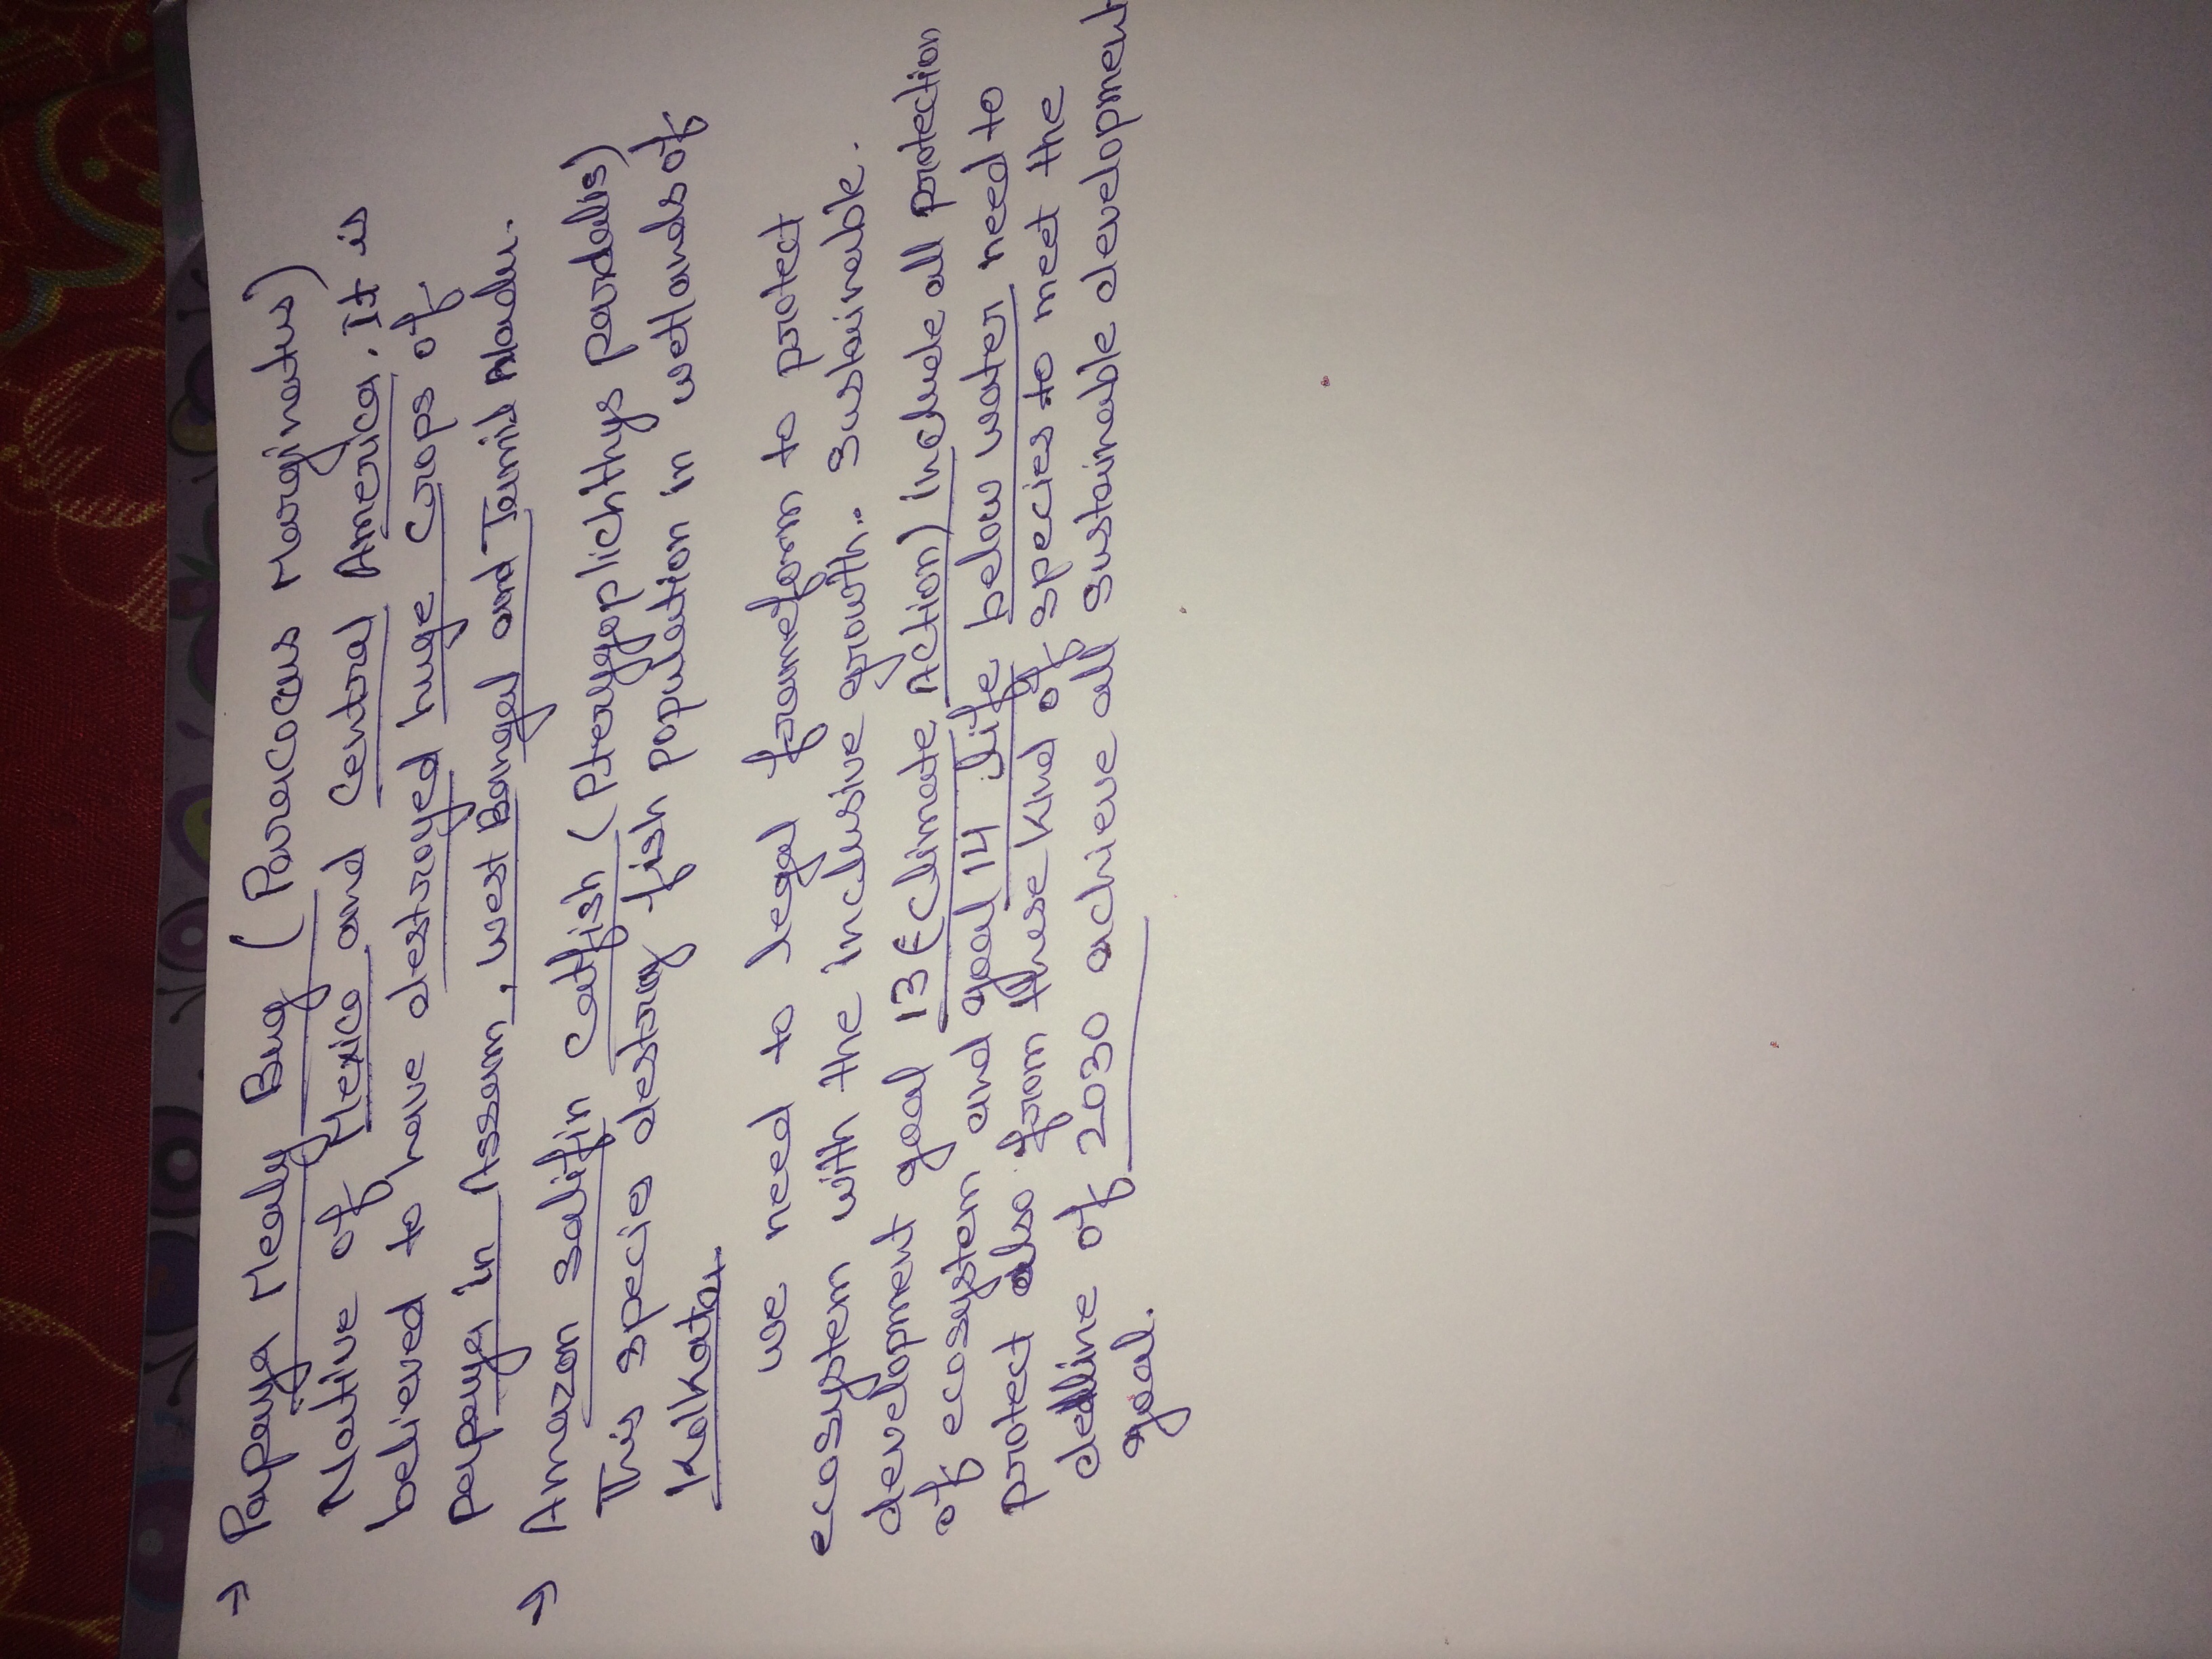 → Papaya Mealy Bug (Paracocus Marginatus)
Native of Mexico and Central America. It is
believed to have destroyed huge crops of
papaya in Assam, west Bangal and Tamil Nadu.
→ Amazon sailfin catfish (Pterygoplichthys pardalis)
This specie destroy fish population in wetlands of
Kolkata.
we need to legal frametorm to protect
ecosystem with the inclusive growth. Sustainable.
development goal 13 (climate Action) include all protection
of ecosystem and goal 14 life below water need to
protect also from these kind of species to meet the
dedline of 2030 achieve all sustainable development
goal.